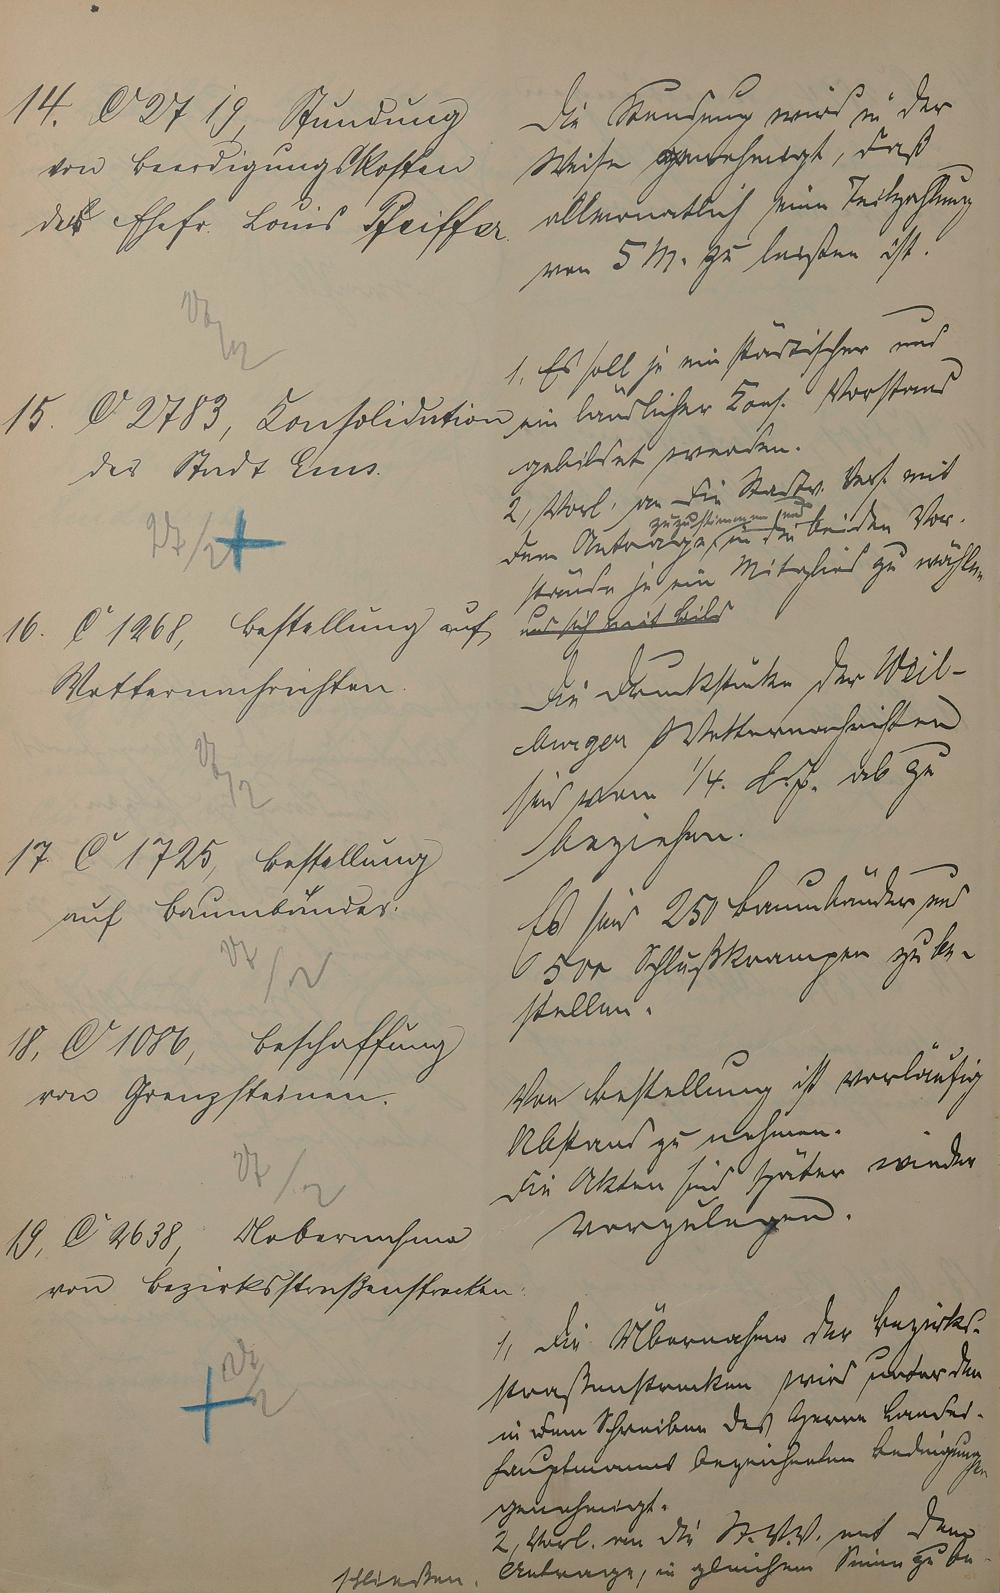 14. C 2719, Stundung
von Beerdigungskosten
des Ehefr. Louis Pfeiffer.
Die Stundung wird in der
Weise genehmigt, daß
allmonatlich eine Teilzahlung
von 5 M. zu leisten ist.
15. C 2783, Konsolidation
der Stadt Ems.
1, Es soll je ein städtischer und
ein ländlicher Kons. Vorstand
gebildet werden.
2, Vorl. an die Stadtv. Vers. mit
dem Antrage, zuzustimmen und in die beiden Vor-
stände je ein Mitglied zu wählen
und sich mit
16. C 1268, Bestellung auf
Wetternachrichten.
Die Druckstücke der Weil-
burger Wetternachrichten
sind vom 1/4. d. J. ab zu
beziehen.
17. C 1725, Bestellung
auf Baumbänder.
Es sind 250 Baumbänder und
500 Schlußkrampen zu be-
stellen.
18. C 1086, Beschaffung
von Grenzsteinen.
Von Bestellung ist vorläufig
Abstand zu nehmen.
Die Akten sind später wieder
vorzulegen.
19, C 2638, Uebernahme
von Bezirksstraßenstrecken.
1, Die Übernahme der Bezirks-
straßenstrecken wird unter den
in dem Schreiben des Herrn Landes-
hauptmanns bezeichneten Bedingungen
genehmigt.
2, Vorl. an die St.V.V. mit dem
Antrage, in gleichem Sinne zu be-
schließen.